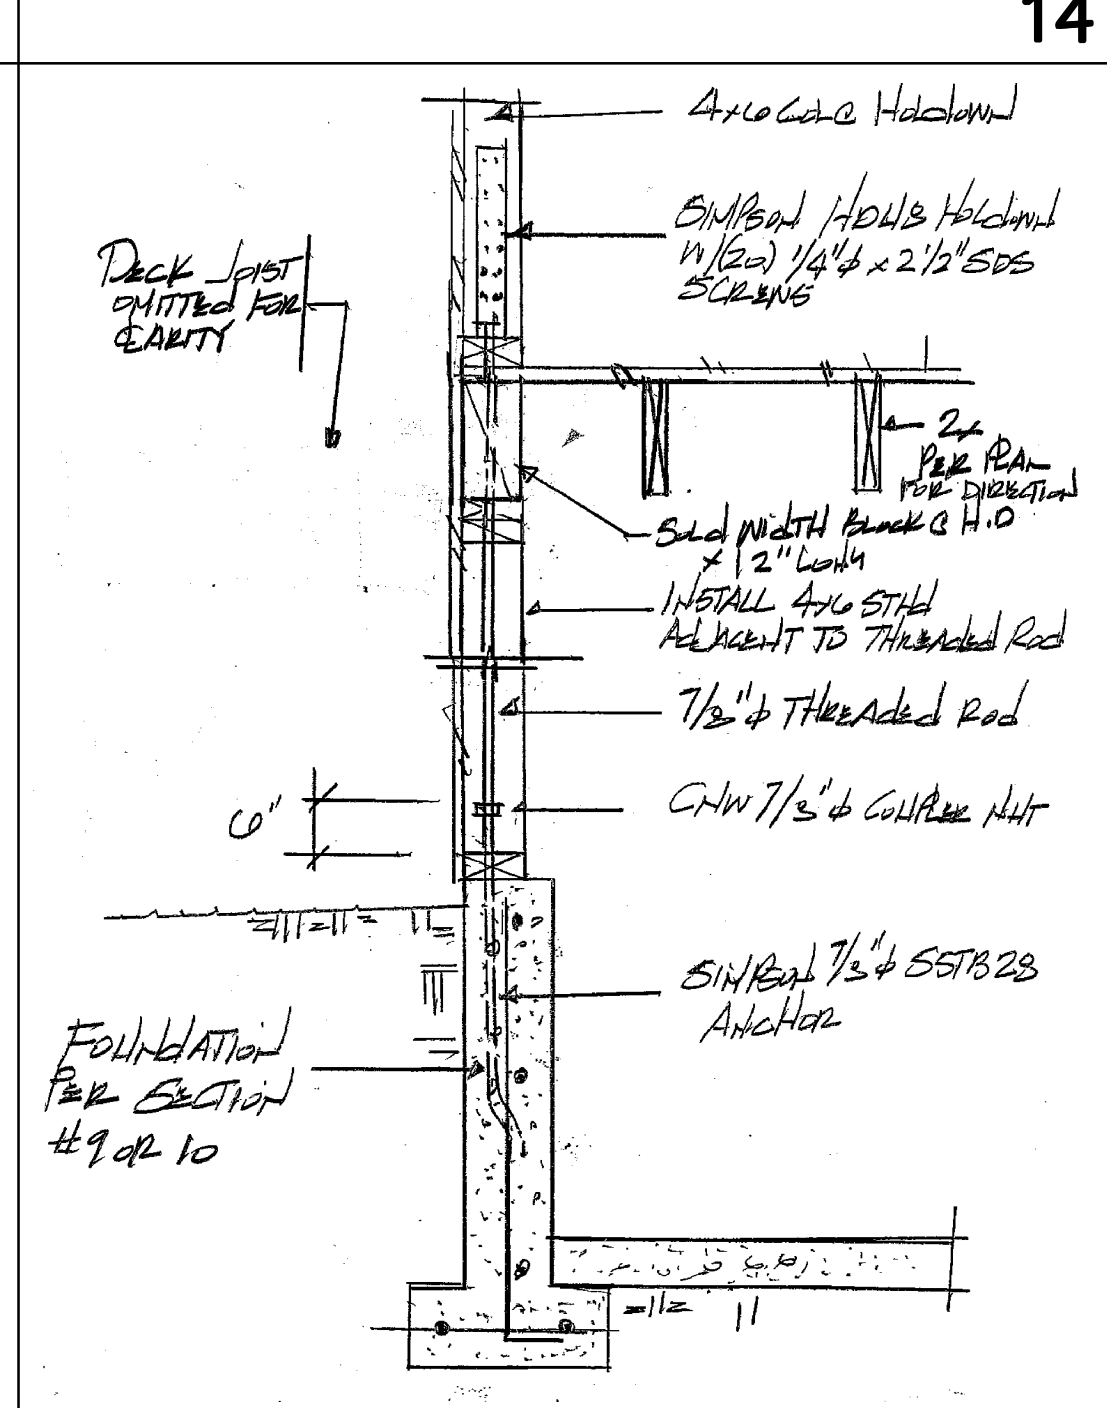 14
4x6 COL @ HOLDOWN
SIMPSON HDU8 HOLDOWN
W/(20) 1/4"ϕ x 2 1/2" SDS
SCREWS
DECK JOIST
OMITTED FOR
CLARITY
2x
PER PLAN
FOR DIRECTION
SOLID WIDTH BLOCK @ H.D
x 12" LONG
INSTALL 4x6 STUD
ADJACENT TO THREADED ROD
7/8"ϕ THREADED ROD
CNW 7/8"ϕ COUPLER NUT
6"
SIMPSON 7/8"ϕ SSTB28
ANCHOR
FOUNDATION
PER SECTION
#9 OR 10